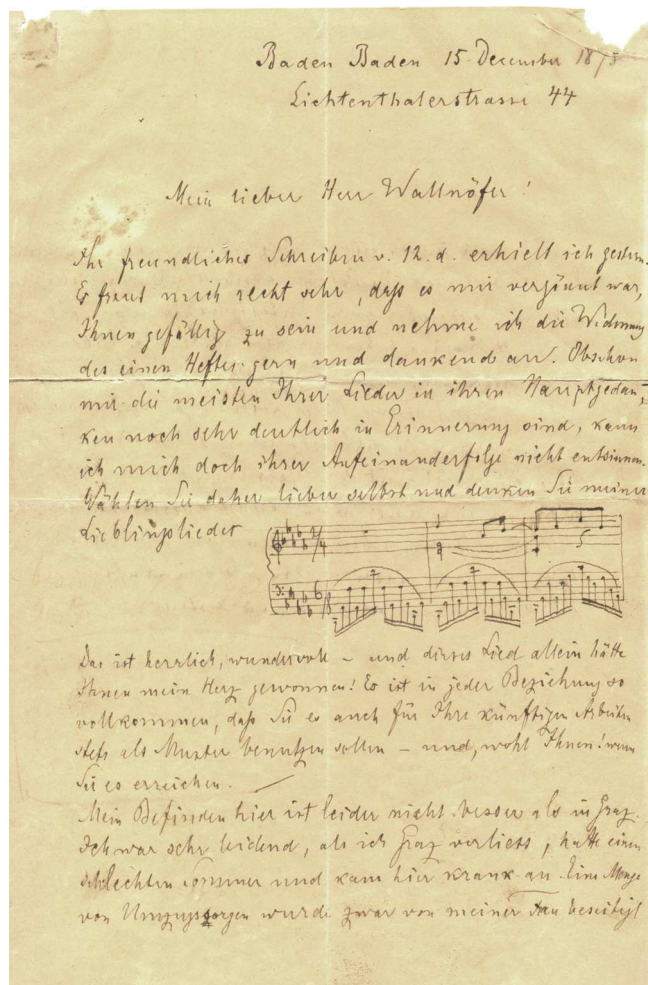 Baden Baden 15. December 1875
Lichtenthalerstrasse 44
Mein lieber Herr Wallnöfer!
Ihr freundliches Schreiben v. 12. d. erhielt ich gestern.
Es freut mich recht sehr, daß es mir vergönnt war,
Ihnen gefällig zu sein und nehme ich die Widmung
des einen Heftes gern und dankend an. Obschon
mir die meisten Ihrer Lieder in ihren Hauptgedan-
ken noch sehr deutlich in Erinnerung sind, kann
ich mich doch ihrer Aufeinanderfolge nicht entsinnen.
Wählen Sie daher lieber selbst und denken Sie meiner
Lieblingslieder
Das ist herrlich, wundervoll – und dieses Lied allein hätte
Ihnen mein Herz gewonnen! Es ist in jeder Beziehung so
vollkommen, daß Sie es auch für Ihre künftigen Arbeiten
stets als Muster benutzen sollen – und, wohl Ihnen! wenn
Sie es erreichen. –
Mein Befinden hier ist leider nicht besser als in Graz.
Ich war sehr leidend, als ich Graz verliess, hatte einen
schlechten Sommer und kam hier krank an. Eine Menge
von Umzugssorgen wurde zwar von meiner Frau beseitigt